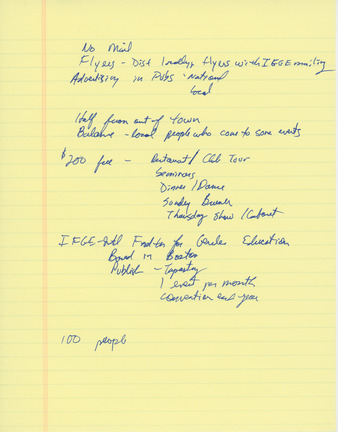 No Mail
Flyers - Dist locally, flyers with IFGE mailing
Advertising in Pubs - National
local
Half from out of town
Balance - local people who come to some events
$200 fee - Restaurant/Club Tour
Seminars
Dinner/Dance
Sunday Brunch
Thursday Show/Cabaret
IFGE - Intl Fndtn for Gender Education
Based in Boston
Publish - Tapestry
1 event per month
convention each year
100 people